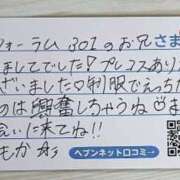 フォーラム 301のお兄さま
ましてでした♡プレスあり
ございました♡制服でえっち
のは興奮しちゃうねまた
会いに来てね!!
もか
ヘブンネット口コミ→